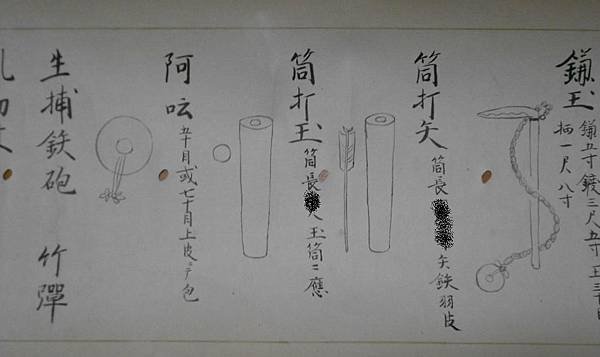 鎌玉
鎌五寸鍰三尺五寸玉三十目
柄一尺八寸
筒打矢
筒長 矢鉄羽皮
筒打玉
筒長 尺玉筒ニ應
阿吰
五十目或七十目上皮ニテ包
生捕鉄砲 竹彈